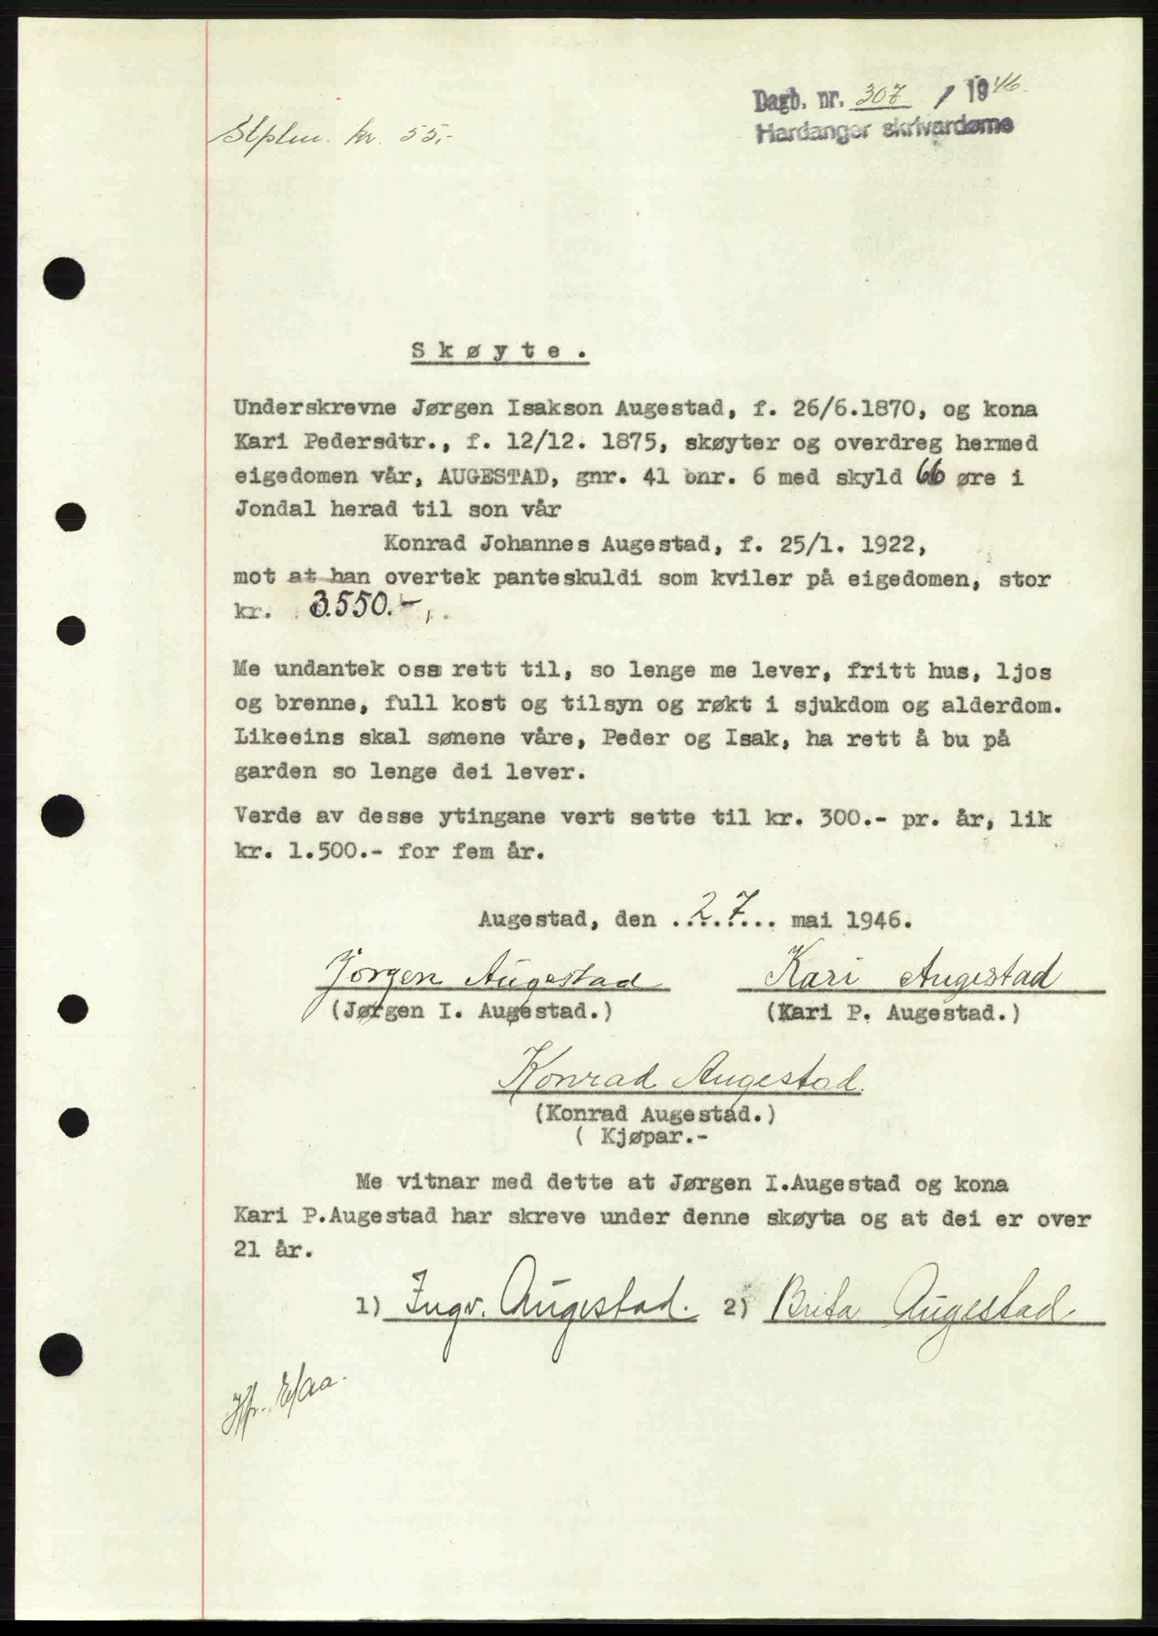 Dagb. nr. 307 / 1946.
Hardanger skrivardøme
Stplm. kr. 55,-
Skøyte.
Underskrevne Jørgen Isakson Augestad, f. 26/6.1870, og kona
Kari Pedersdtr., f. 12/12. 1875, skøyter og overdreg hermed
eigedomen vår, AUGESTAD, gnr. 41 bnr. 6 med skyld 66 øre i
Jondal herad til son vår
Konrad Johannes Augestad, f. 25/1. 1922,
mot at han overtek panteskuldi som kviler på eigedomen, stor
kr. 3.550.-,.
Me undantek oss rett til, so lenge me lever, fritt hus, ljos
og brenne, full kost og tilsyn og røkt i sjukdom og alderdom.
Likeeins skal sønene våre, Peder og Isak, ha rett å bu på
garden so lenge dei lever.
Verde av desse ytingane vert sette til kr. 300.- pr. år, lik
kr. 1.500.- for fem år.
Augestad, den ..27... mai 1946.
Jørgen Augestad Kari Augestad
(Jørgen I. Augestad.) (Kari P. Augestad.)
Konrad Augestad.
(Konrad Augestad.)
( Kjøpar.-
Me vitnar med dette at Jørgen I.Augestad og kona
Kari P.Augestad har skreve under denne skøyta og at dei er over
21 år.
1) Ingv. Augestad. 2) Brita Augestad.